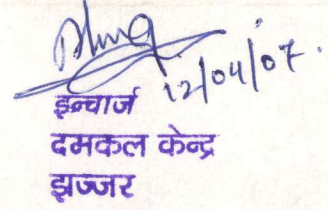 12/04/07.
इन्चार्ज
दमकल केन्द्र
झज्जर